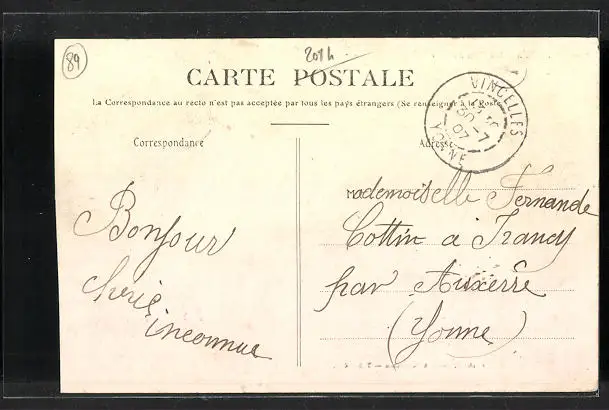 89
CARTE POSTALE
La Correspondance au recto n'est pas acceptée par tous les pays étrangers (Se renseigner à la Poste)
VINCELLES
30-7
07
YONNE
Correspondance
Adresse
Bonjour
chérie
inconnue
Mademoiselle Fernande
Cottin à Irancy
par Auxerre
(Yonne)